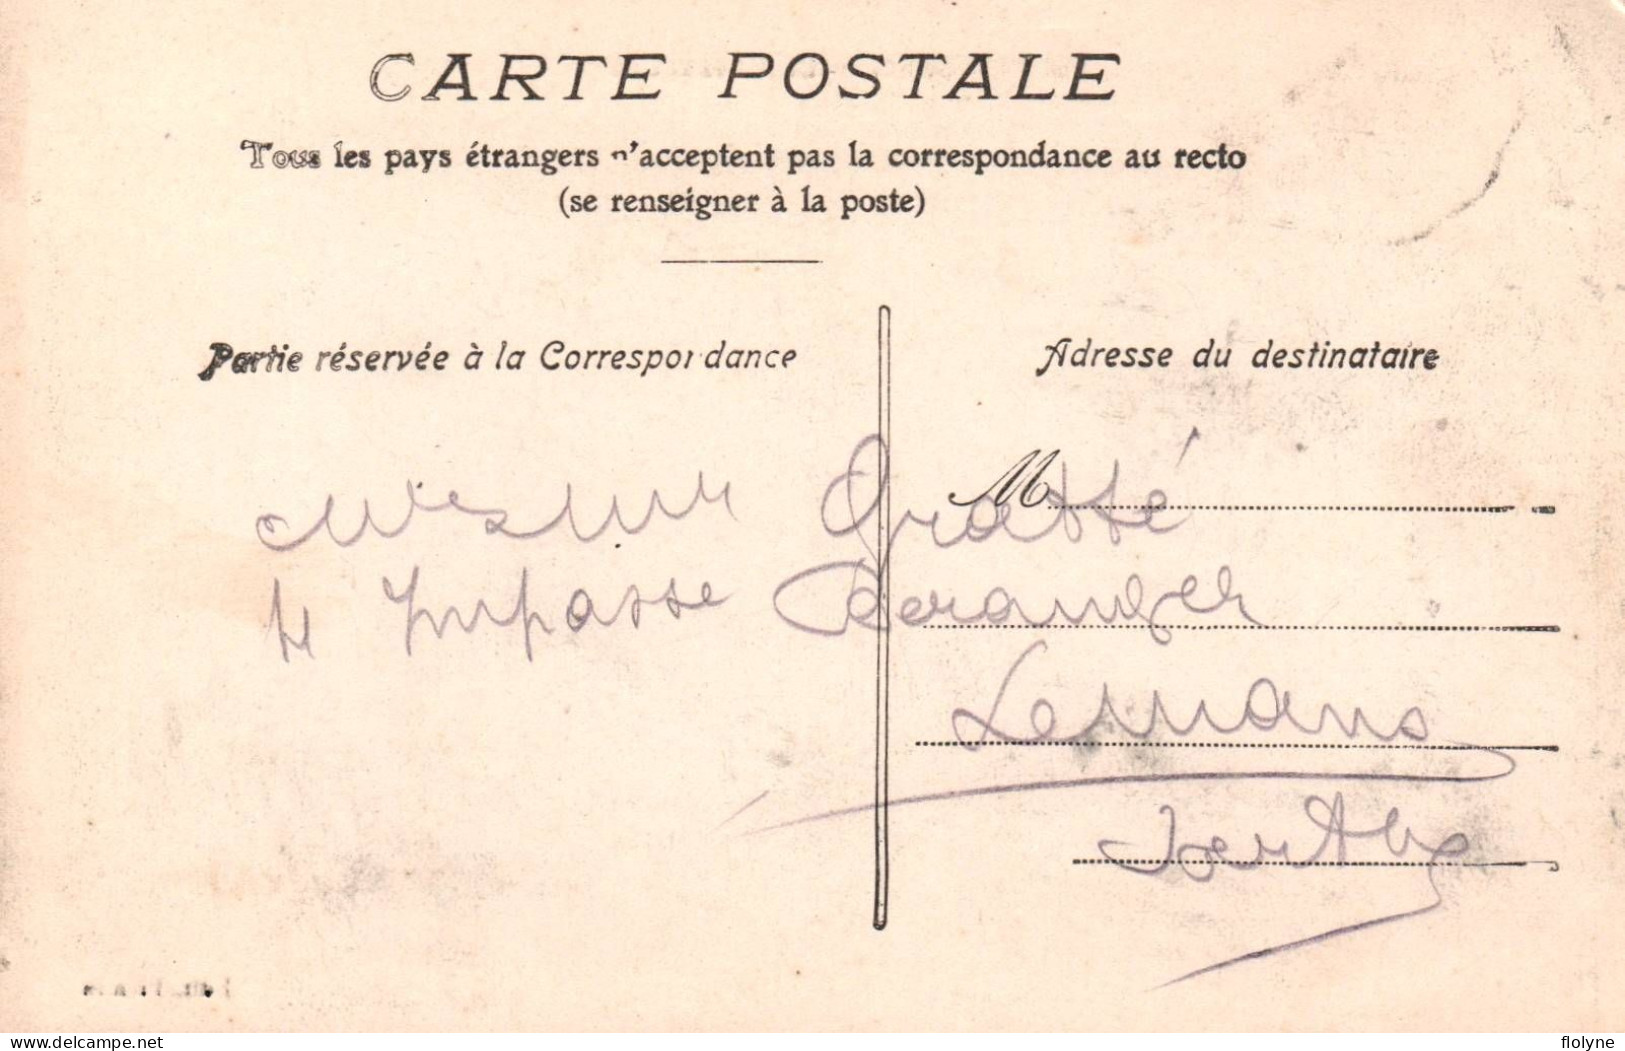 CARTE POSTALE
Tous les pays étrangers n'acceptent pas la correspondance au recto
(se renseigner à la poste)
Partie réservée à la Correspondance
Adresse du destinataire
M
Impasse Beranger
Lemans
Sarthe
delcampe.net
flolyne